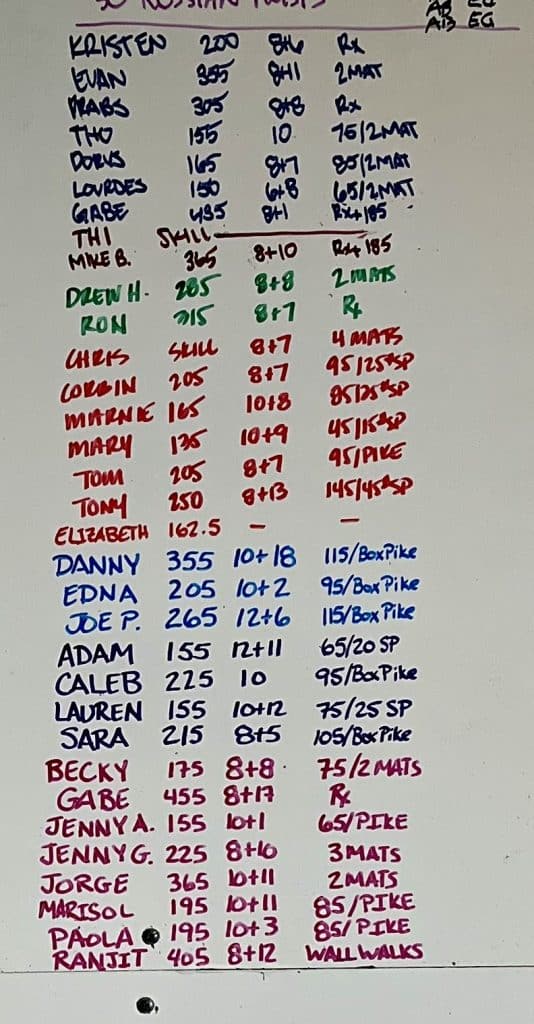 50 RUSSIAN TWISTS
AB EG
KRISTEN 200 8+6 Rx
EVAN 355 8+1 2MAT
PRABS 305 8+8 Rx
THO 155 10 75/2MAT
DORUS 165 8+7 85/2MAT
LOURDES 150 6+8 65/2MAT
GABE 435 8+1 Rx+185
THI SKILL
MIKE B. 365 8+10 Rx+ 185
DREW H. 285 8+8 2MATS
RON 315 8+7 Rx
CHRIS SKILL 8+7 4 MATS
CORBIN 205 8+7 95/25#SP
MARNIE 165 10+8 85/25#SP
MARY 135 10+9 45/15#SP
TOM 205 8+7 95/PIKE
TONY 250 8+13 145/45#SP
ELIZABETH 162.5 - -
DANNY 355 10+18 115/BoxPike
EDNA 205 10+2 95/BoxPike
JOE P. 265 12+6 115/Box Pike
ADAM 155 12+11 65/20 SP
CALEB 225 10 95/BoxPike
LAUREN 155 10+12 75/25 SP
SARA 215 8+5 105/BoxPike
BECKY 175 8+8 75/2MATS
GABE 455 8+17 Rx
JENNY A. 155 10+1 65/PIKE
JENNY G. 225 8+10 3MATS
JORGE 365 10+11 2MATS
MARISOL 195 10+11 85/PIKE
PAOLA 195 10+3 85/PIKE
RANJIT 405 8+12 WALL WALKS